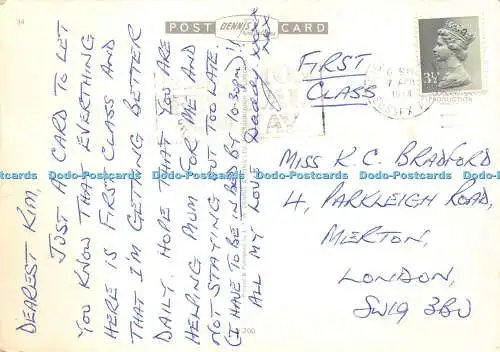 34
POST CARD
DENNIS
DEAREST KIM,
JUST A CARD TO LET
YOU KNOW THAT EVERYTHING
HERE IS FIRST CLASS AND
THAT I'M GETTING BETTER
DAILY. HOPE THAT YOU ARE
HELPING MUM FOR ME AND
NOT STAYING OUT TOO LATE.
(I HAVE TO BE IN BED BY 10.30PM)!
ALL MY LOVE Daddy xxx
FIRST
CLASS
3½P
1974
MISS K. C. BRADFORD
4, PARKLEIGH ROAD,
MERTON,
LONDON,
SW19 3BU